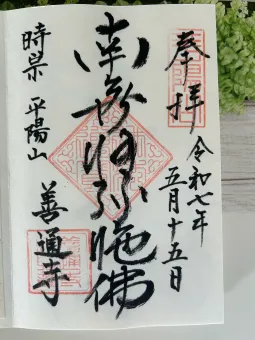 奉拝
令和七年
五月十五日
南無阿弥陀佛
時衆 平陽山
善通寺